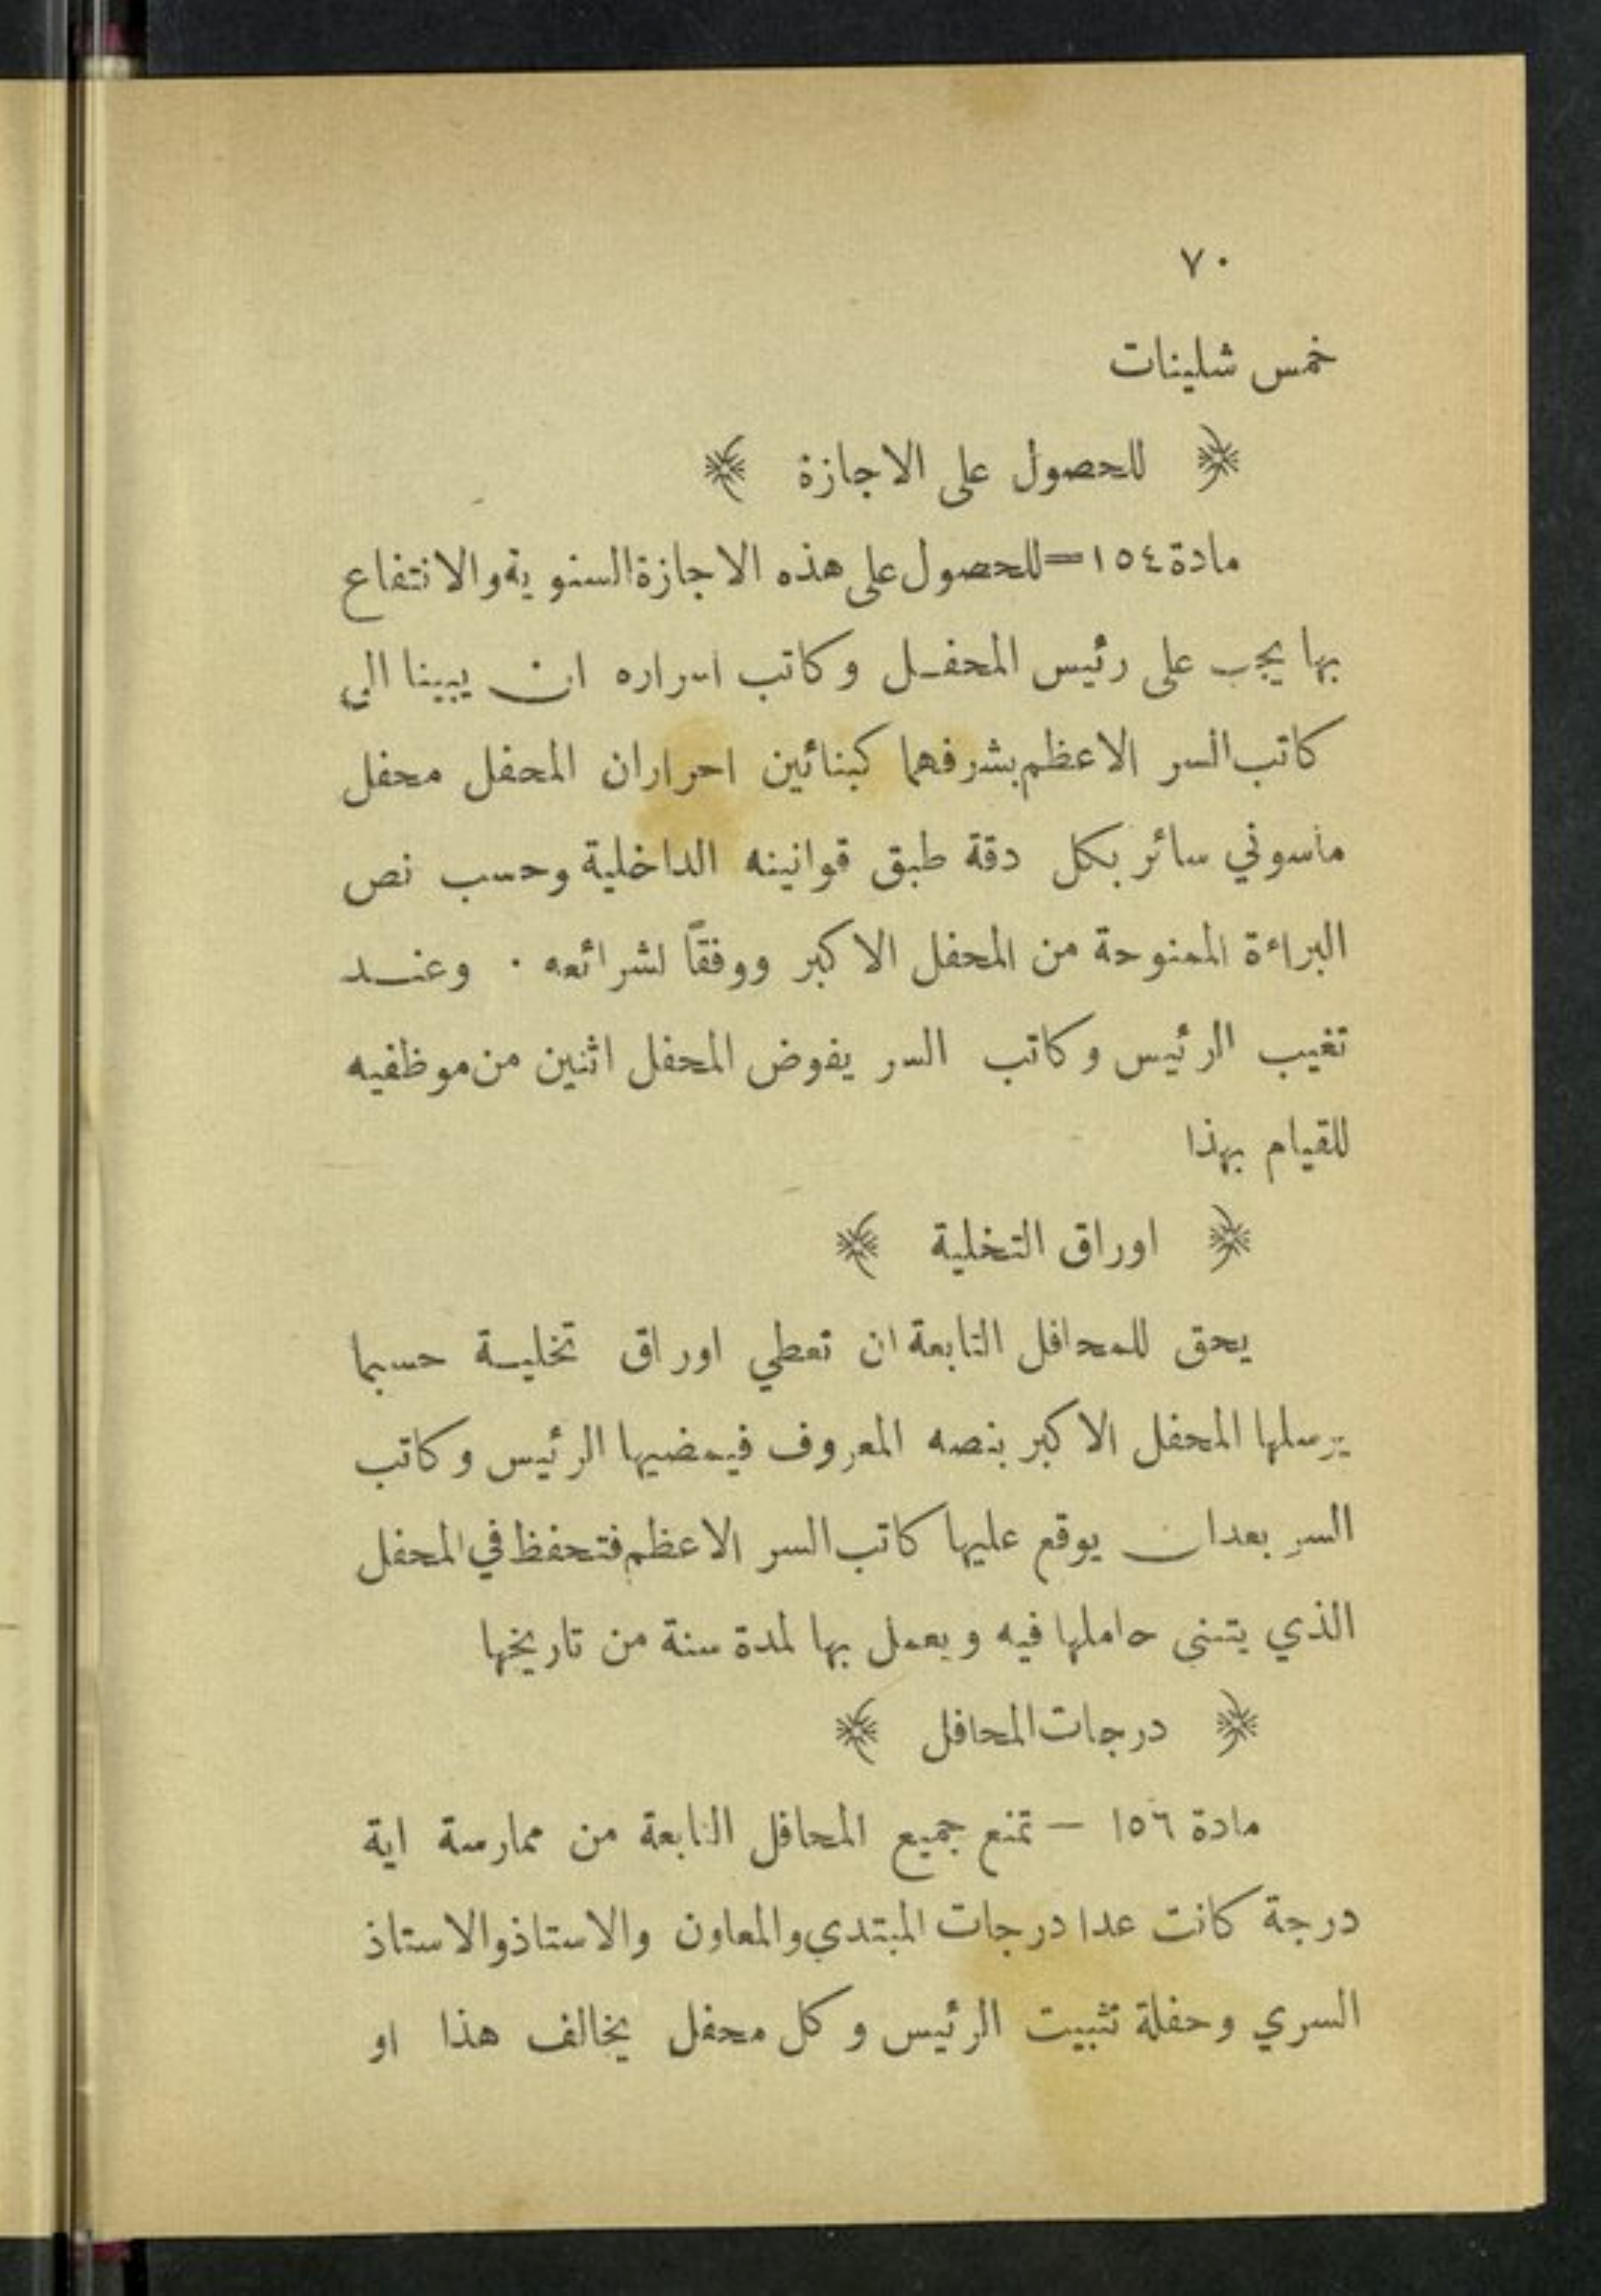 ٧٠
خمس شلينات
﴿ للحصول على الاجازة ﴾
مادة ١٥٤=للحصول على هذه الاجازة السنوية والانتفاع
بها يجب على رئيس المحفل وكاتب اسراره ان يبينا الى
كاتب السر الاعظم بشرفهما كبنائين احرار ان المحفل محفل
ماسوني سائر بكل دقة طبق قوانينه الداخلية وحسب نص
البراءة الممنوحة من المحفل الاكبر ووفقًا لشرائعه . وعند
تغيب الرئيس وكاتب السر يفوض المحفل اثنين من موظفيه
للقيام بهذا
﴿ اوراق التخلية ﴾
يحق للمحافل التابعة ان تعطي اوراق تخلية حسبما
يرسلها المحفل الاكبر بنصه المعروف فيمضيها الرئيس وكاتب
السر بعد ان يوقع عليها كاتب السر الاعظم فتحفظ في المحفل
الذي يتبنى حاملها فيه ويعمل بها لمدة سنة من تاريخها
﴿ درجات المحافل ﴾
مادة ١٥٦ – تمنع جميع المحافل التابعة من ممارسة اية
درجة كانت عدا درجات المبتدي والمعاون والاستاذ والاستاذ
السري وحفلة تثبيت الرئيس وكل محفل يخالف هذا او